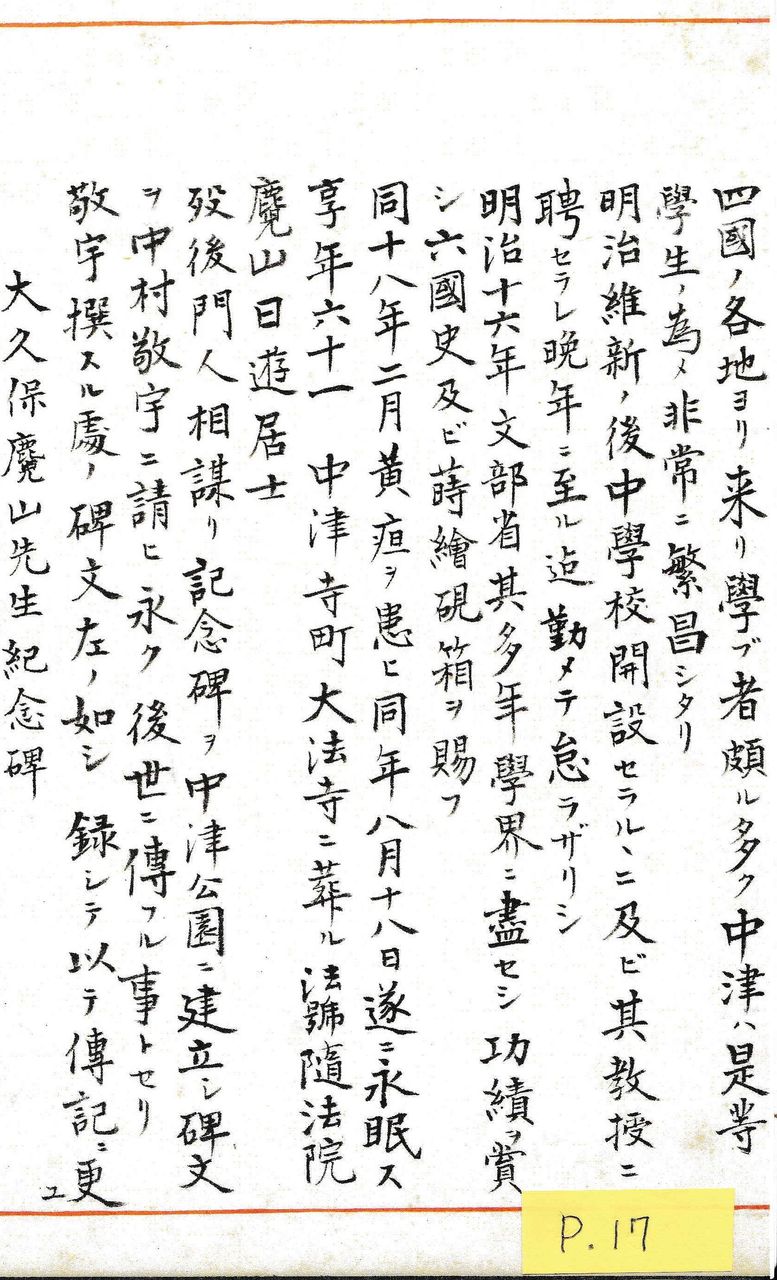 四國ノ各地ヨリ来リ學ブ者頗ル多ク中津ハ是等
學生ノ為メ非常ニ繁昌シタリ
明治維新ノ後中學校開設セラルヽニ及ビ其教授ニ
聘セラレ晩年ニ至ル迠勤メテ怠ラザリシ
明治十六年文部省其多年學界ニ盡セシ功績ヲ賞
シ六國史及ビ蒔繪硯箱ヲ賜フ
同十八年二月黄疸ヲ患ヒ同年八月十八日遂ニ永眠ス
享年六十一 中津寺町大法寺ニ葬ル法號隨法院
麑山日遊居士
歿後門人相謀リ記念碑ヲ中津公園ニ建立シ碑文
ヲ中村敬宇ニ請ヒ永ク後世ニ傳フル事トセリ
敬宇撰スル處ノ碑文左ノ如シ 録シテ以テ傳記ニ更ユ
大久保麑山先生紀念碑
P.17